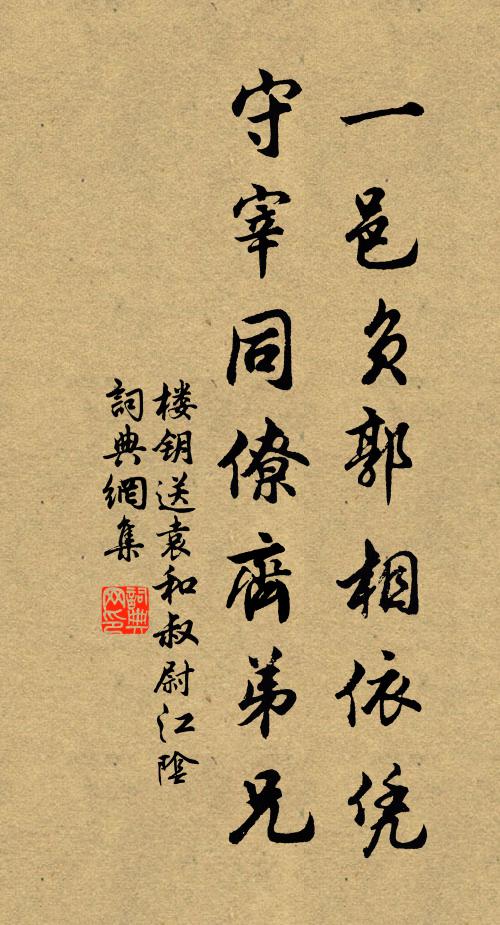 一邑负郭相依凭
守宰同僚齐弟兄
楼钥送袁和叔尉江陰
詞典網集
詞典网印